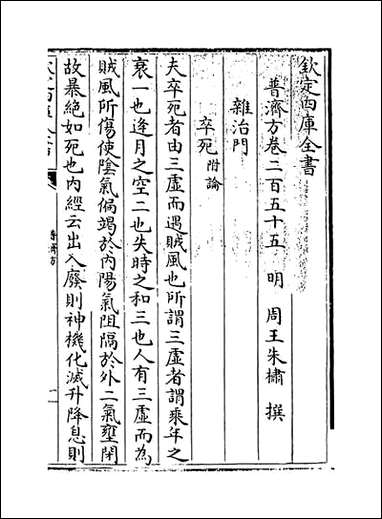 欽定四庫全書
普濟方卷二百五十五 明 周王朱橚 撰
雜治門
卒死附論
夫卒死者由三虛而遇賊風也所謂三虛者謂乘年之
衰一也逢月之空二也失時之和三也人有三虛而為
賊風所傷使陰氣偏竭於內陽氣阻隔於外二氣壅閉
故暴絕如死也內經云出入廢則神機化滅升降息則